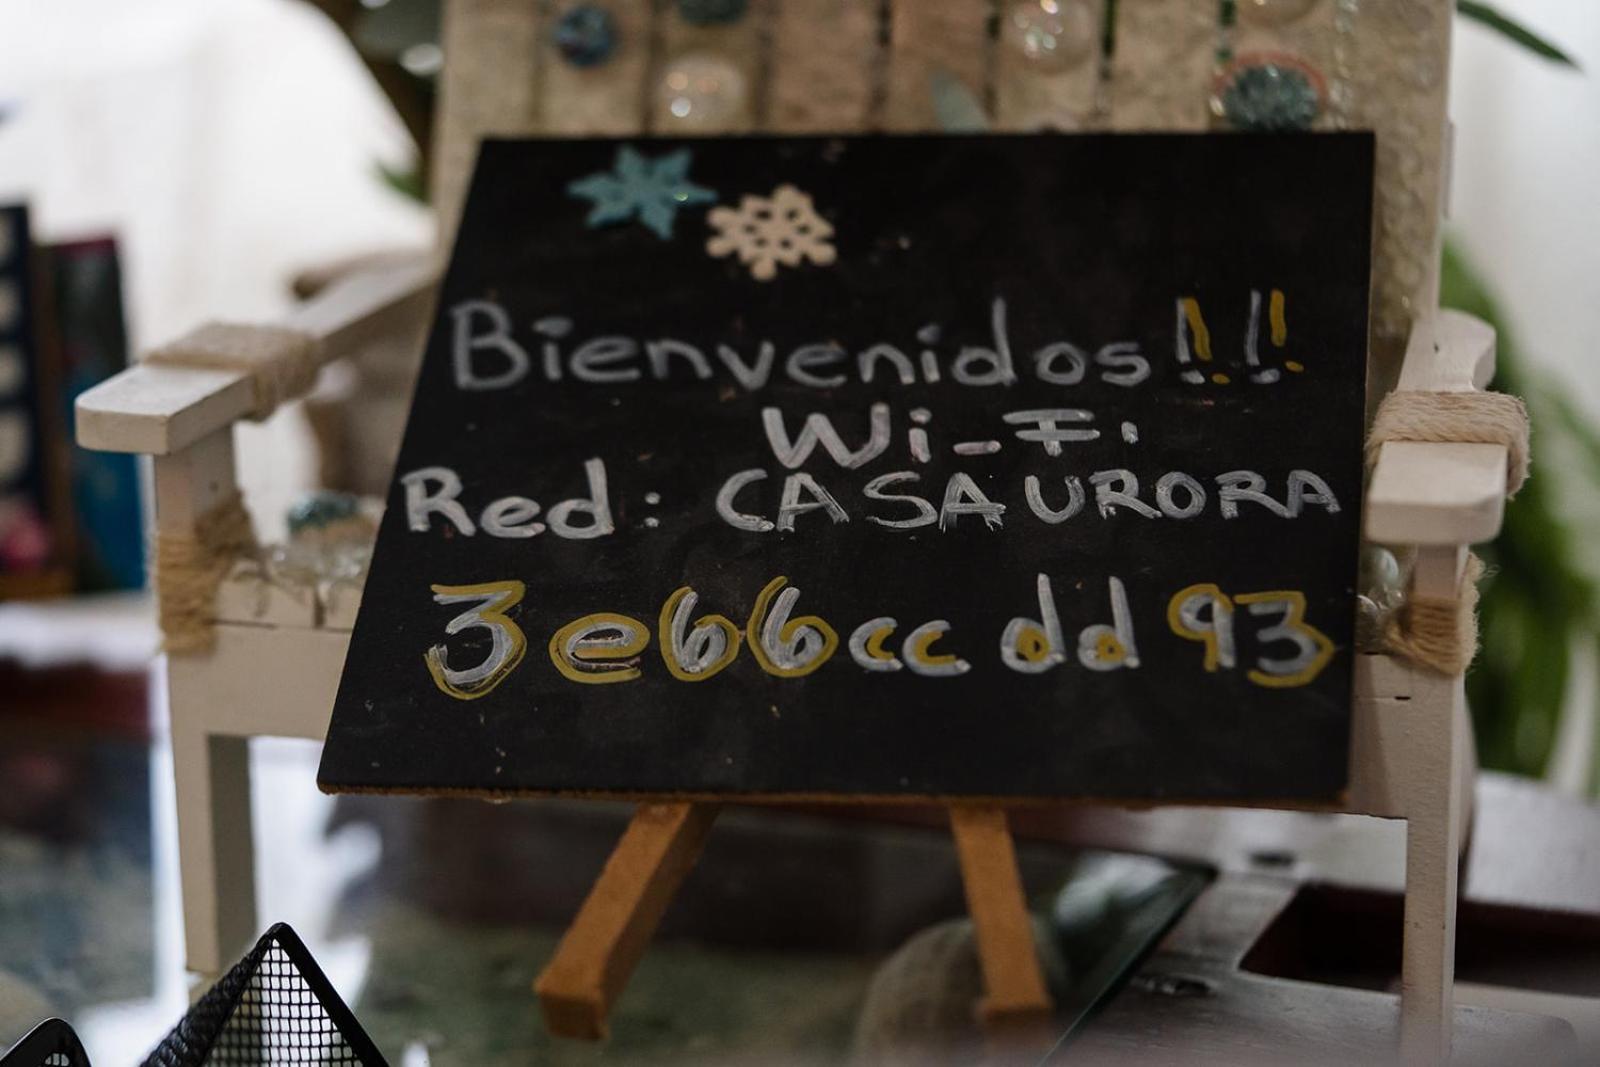 Bienvenidos!!
Wi-Fi
Red: CASAURORA
3e66ccdd93